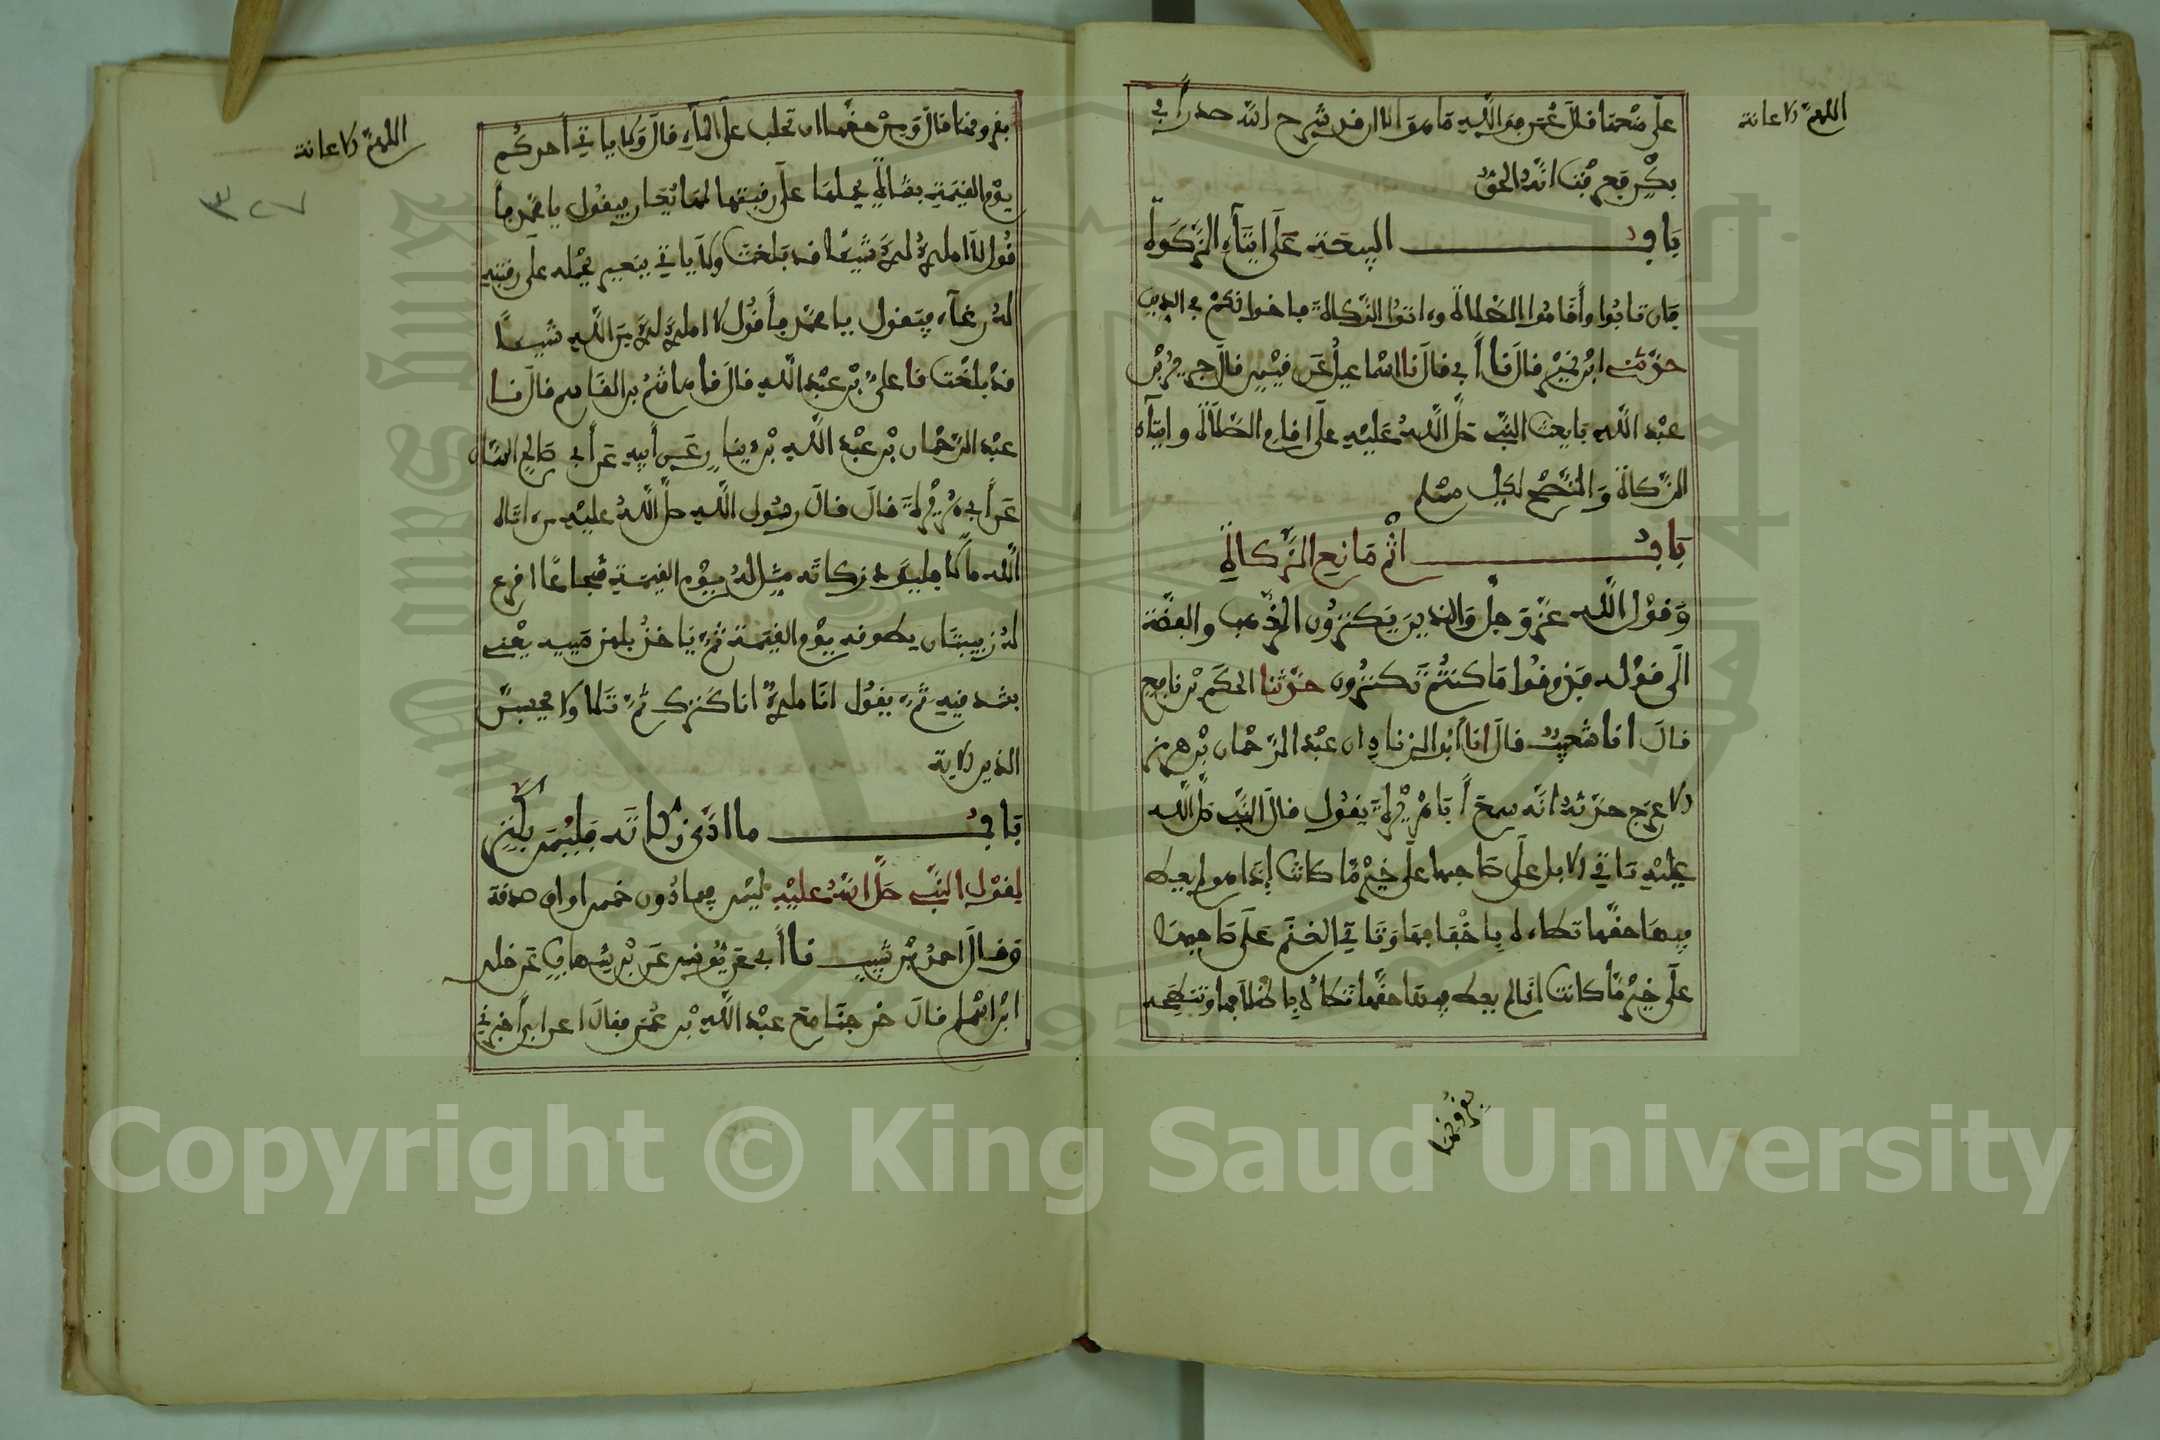 اللهم الاعانة
على منعها قال عمر فوالله ما هو الا ان قد شرح الله صدر أبي
بكر فعرفت انه الحق
باب البيعة على ايتاء الزكوة
فان تابوا وأقاموا الصلاة وءاتوا الزكاة فاخوانكم في الدين
حدثنا ابن نمير قال نا أبي قال نا اسماعيل عن قيس قال جرير بن
عبد الله بايعت النبي صلى الله عليه على اقام الصلاة وايتاء
الزكاة والنصح لكل مسلم
باب اثم مانع الزكاة
وقول الله عز وجل والذين يكنزون الذهب والفضة
الى قوله فذوقوا ما كنتم تكنزون حدثنا الحكم بن نافع
قال انا شعيب قال انا أبو الزناد ان عبد الرحمان بن هرمز
الاعرج حدثه انه سمع أبا هريرة يقول قال النبي صلى الله
عليه تاتي الابل على صاحبها على خير ما كانت إذا هو لم يعط
فيها حقها تطاه باخفافها وتاتي الغنم على صاحبها
على خير ما كانت اذا لم يعط فيها حقها تطاه باظلافها وتنطحه
بقرونها
اللهم الاعانة
٣٢٧
بقرونها قال ومن حقها ان تحلب على الماء قال ولا ياتي أحدكم
يوم القيمة بشاة يحملها على رقبته لها يعار فيقول يا محمد فا
قول لا املك لك شيئا قد بلغت ولا ياتي ببعير يحمله على رقبته
له رغاء فيقول يا محمد فأقول لا املك لك من الله شيئا
قد بلغت نا علي بن عبد الله قال نا هاشم بن القاسم قال نا
عبد الرحمان بن عبد الله بن دينار عن أبيه عن أبي صالح السمان
عن أبي هريرة قال قال رسول الله صلى الله عليه من اتاه
الله مالا فلم يود زكاته مثل له يوم القيمة شجاعا اقرع
له زبيبتان يطوقه يوم القيمة ثم ياخذ بلهزميه يعني
بشدقيه ثم يقول انا مالك انا كنزك ثم تلا ولا يحسبن
الذين الاية
باب ما ادي زكاته فليس بكنز
لقول النبي صلى الله عليه ليس فيما دون خمس اواق صدقة
وقال احمد بن شبيب نا أبي عن يونس عن بن شهاب عن خلد
ابن اسلم قال خرجنا مع عبد الله بن عمر فقال اعرابي أخبرني
Copyright © King Saud University
1957